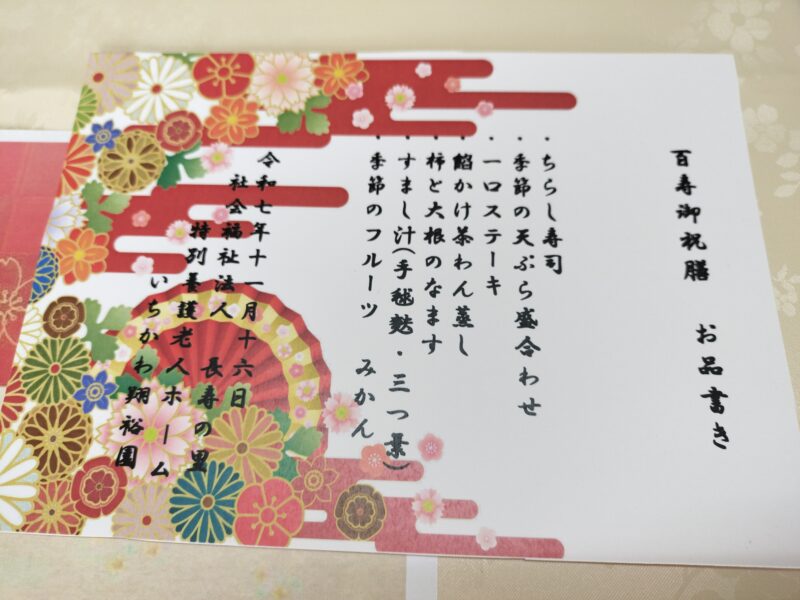 百寿御祝膳 お品書き
・ちらし寿司
・季節の天ぷら盛合わせ
・一口ステーキ
・餡かけ茶わん蒸し
・柿と大根のなます
・すまし汁(手毬麩・三つ葉)
・季節のフルーツ みかん
令和七年十一月十六日
社会福祉法人 長寿の里
特別養護老人ホーム
いちかわ翔裕園